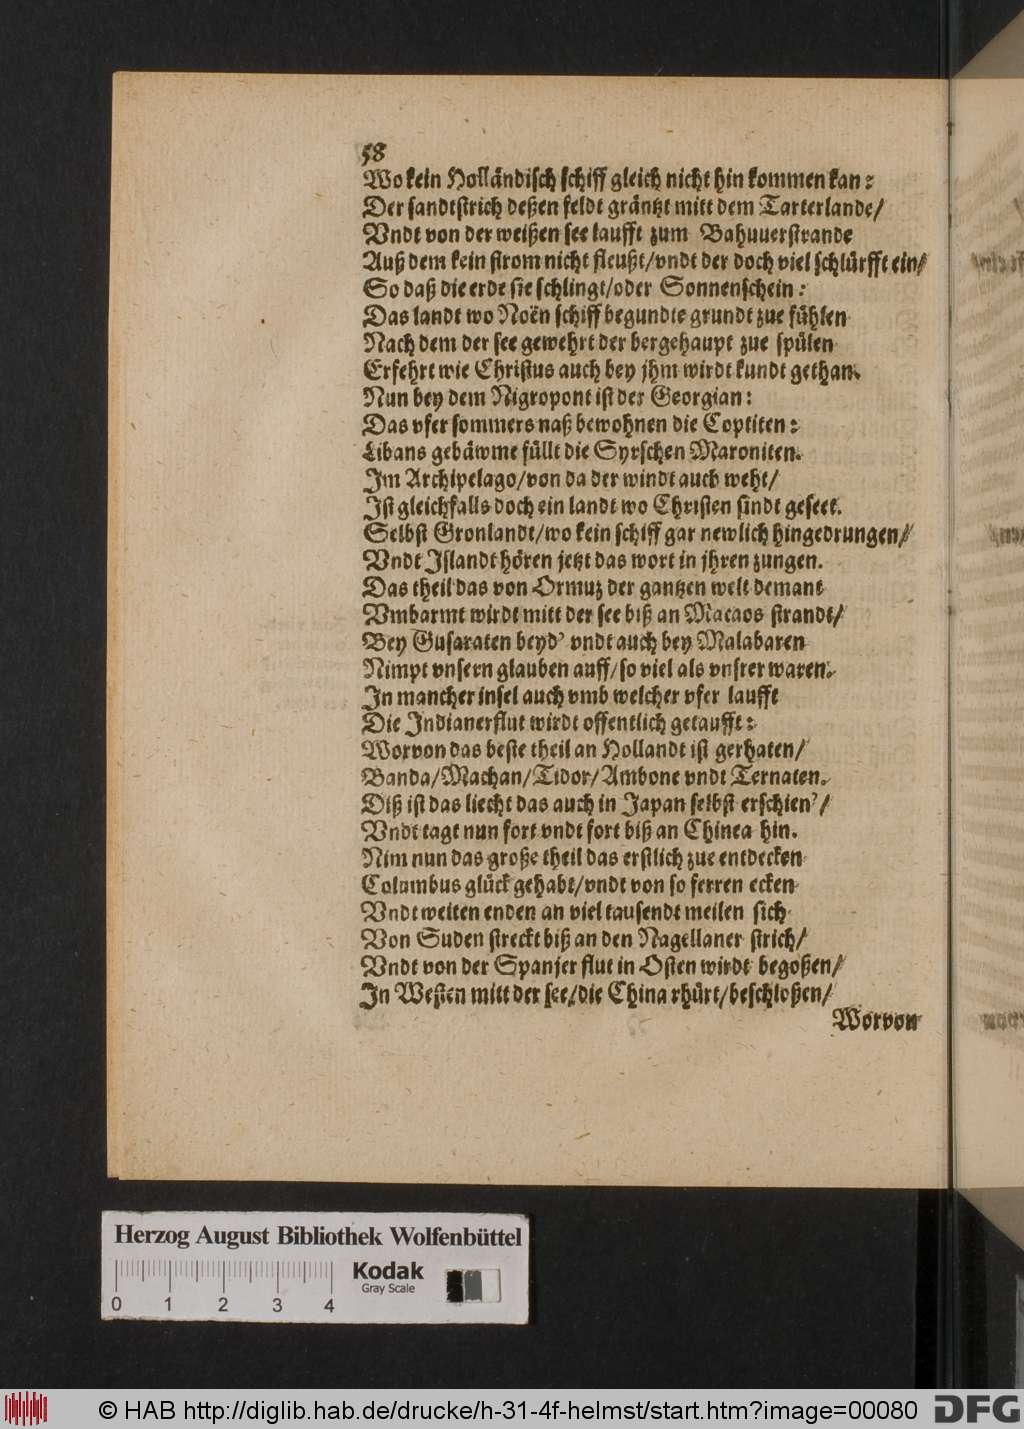 58
Wo kein Holländisch schiff gleich nicht hin kommen kan:
Der sandtstrich deßen feldt gräntzt mitt dem Tarterlande/
Vndt von der weißen see laufft zum Bahuuerstrande
Auß dem kein strom nicht fleußt/vndt der doch viel schlürfft ein/
So daß die erde sie schlingt/oder Sonnenschein:
Das landt wo Noën schiff begundte grundt zue fühlen
Nach dem der see gewehrt der bergehaupt zue spülen
Erfehrt wie Christus auch bey jhm wirdt kundt gethan.
Nun bey dem Nigropont ist der Georgian:
Das vfer sommers naß bewohnen die Coptiten:
Libans gebäwme füllt die Syrschen Maroniten.
Im Archipelago/von da der windt auch weht/
Ist gleichfalls doch ein landt wo Christen sindt geseet.
Selbst Gronlandt/wo kein schiff gar newlich hingedrungen/
Vndt Islandt hören jetzt das wort in jhren zungen.
Das theil das von Ormuz der gantzen welt demant
Vmbarmt wirdt mitt der see biß an Macaos strandt/
Bey Gusaraten beyd' vndt auch bey Malabaren
Nimpt vnsern glauben auff/so viel als vnsrer waren.
In mancher insel auch vmb welcher vfer laufft
Die Indianerflut wirdt offentlich getaufft:
Worvon das beste theil an Hollandt ist gerhaten/
Banda/Machan/Tidor/Ambone vndt Ternaten.
Diß ist das liecht das auch in Japan selbst erschien'/
Vndt tagt nun fort vndt fort biß an Chinea hin.
Nim nun das große theil das erstlich zue entdecken
Columbus glück gehabt/vndt von so ferren ecken
Vndt weiten enden an viel tausendt meilen sich
Von Suden streckt biß an den Nagellaner strich/
Vndt von der Spanjer flut in Osten wirdt begoßen/
In Westen mitt der see/die China rhürt/beschloßen/
Worvon
Herzog August Bibliothek Wolfenbüttel
Kodak
Gray Scale
0 1 2 3 4
© HAB http://diglib.hab.de/drucke/h-31-4f-helmst/start.htm?image=00080
DFG